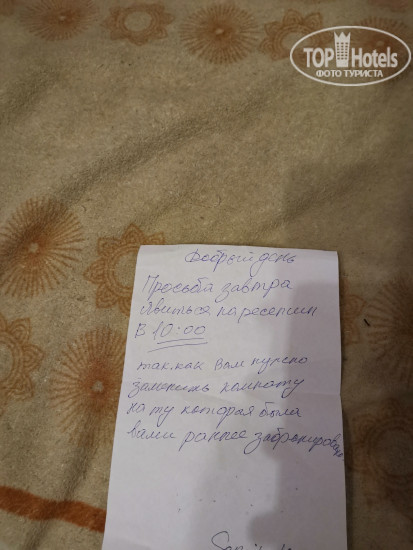 TOP Hotels
ФОТО ТУРИСТА
Добрый день
Просьба завтра
явиться на ресепшн
В 10:00
так как Вам нужно
заменить комнату
на ту которая была
вами раннее